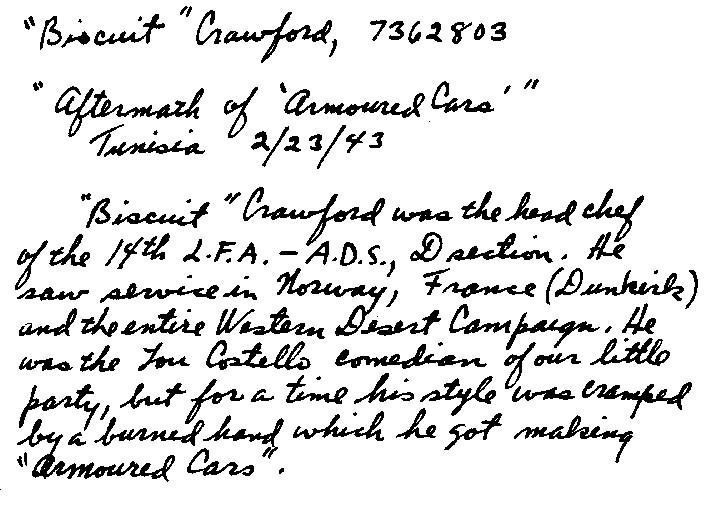 "Biscuit" Crawford, 7362803
"Aftermath of 'Armoured Cars'"
Tunisia 2/23/43
"Biscuit" Crawford was the head chef
of the 14th L.F.A. - A.D.S., D section. He
saw service in Norway, France (Dunkirk)
and the entire Western Desert Campaign. He
was the Lou Costello comedian of our little
party, but for a time his style was cramped
by a burned hand which he got making
"Armoured Cars".